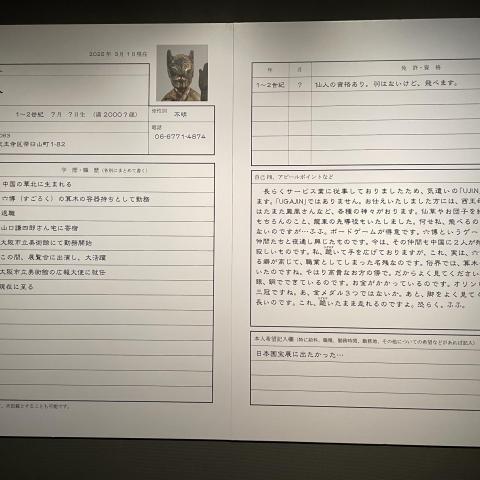 2025年 3月1日現在
1～2世紀 ?月 ?日生 (満2000?歳)
性別回
不明
電話
06-6771-4874
天王寺区茶臼山町1-82
学 歴・職 歴 (各別にまとめて書く)
中国の華北に生まれる
六博(すごろく)の算木の容器持ちとして勤務
退職
山口謙四郎さん宅に寄宿
大阪市立美術館にて勤務開始
この間、展覧会に出演し、大活躍
大阪市立美術館の広報大使に就任
現在に至る
年 月 免 許・資 格
1～2世紀 ? 仙人の資格あり。羽はないけど、飛べます。
自己PR、アピールポイントなど
長らくサービス業に従事しておりましたため、気遣いの「UJIN
ます。「UGAJIN」ではありません。お仕えいたしました方には、西王母
はたまた鳳凰さんなど、各種の神々がおります。仙草やお団子を
もちろんのこと、龍車の先導役もいたしました。何せ私、飛べるの
ないのですが…ふふ。ボードゲームが得意です。六博というゲー
仲間たちと夜通し興じたものです。今は、その仲間も中国に2人が
寂しいものです。私、跪いて手を広げておりますが、これ、実は、六
る癖が高じて、職業としてしまった名残なのです。俗界では、算木
いたのですね。やはり高貴なお方の傍で。だからよく見てください
眼、銅でできているのです。お金がかかっているのです。オリン
三冠ですね。あ、金メダル3つではないか。あと、脚をよく見て
長いのです。これ、跪いたまま走れるのですよ。恐らく。ふふ。
本人希望記入欄 (特に給料、職種、勤務時間、勤務地、その他についての希望などがあれば記入)
日本国宝展に出たかった…